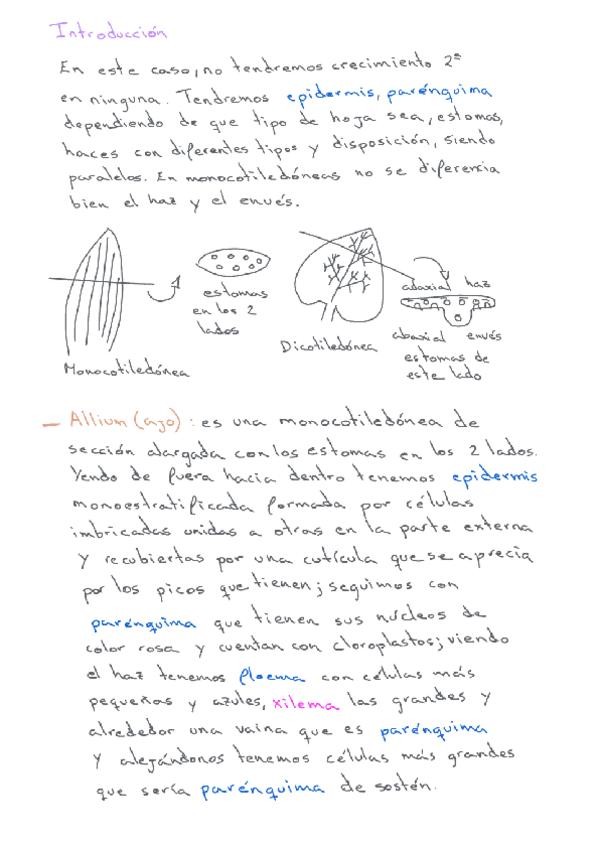 Introducción
En este caso, no tendremos crecimiento 2º
en ninguna. Tendremos epidermis, parénquima
dependiendo de que tipo de hoja sea, estomas,
haces con diferentes tipos y disposición, siendo
paralelos. En monocotiledóneas no se diferencia
bien el haz y el envés.
estomas
en los 2
lados
Monocotiledónea
Dicotiledónea
adaxial haz
abaxial envés
estomas de
este lado
— Allium (ajo): es una monocotiledónea de
sección alargada con los estomas en los 2 lados.
Yendo de fuera hacia dentro tenemos epidermis
monoestratificada formada por células
imbricadas unidas a otras en la parte externa
y recubiertas por una cutícula que se aprecia
por los picos que tienen; seguimos con
parénquima que tienen sus núcleos de
color rosa y cuentan con cloroplastos; viendo
el haz tenemos floema con células más
pequeñas y azules, xilema las grandes y
alrededor una vaina que es parénquima
y alejándonos tenemos células más grandes
que sería parénquima de sostén.